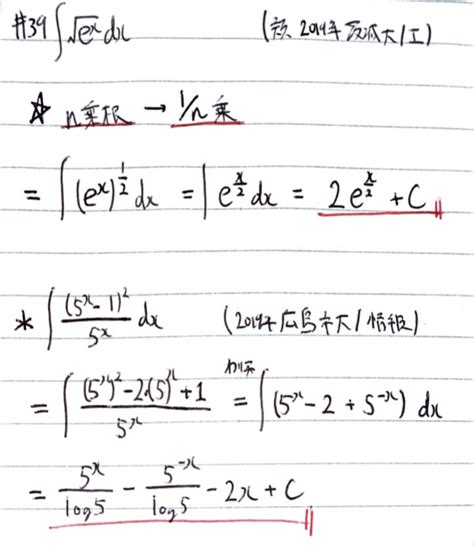 #39 ∫√e^x dx ( 2019年 茨城大/工)
☆ n乗根 → 1/n乗
= ∫(e^x)^{1/2} dx = ∫e^{x/2} dx = 2e^{x/2} + C
* ∫(5^x - 1)^2/5^x dx (2019年 広島市大/情報)
= ∫((5^x)^2 - 2(5)^x + 1)/5^x = ∫(5^x - 2 + 5^{-x}) dx
= 5^x/log5 - 5^{-x}/log5 - 2x + C